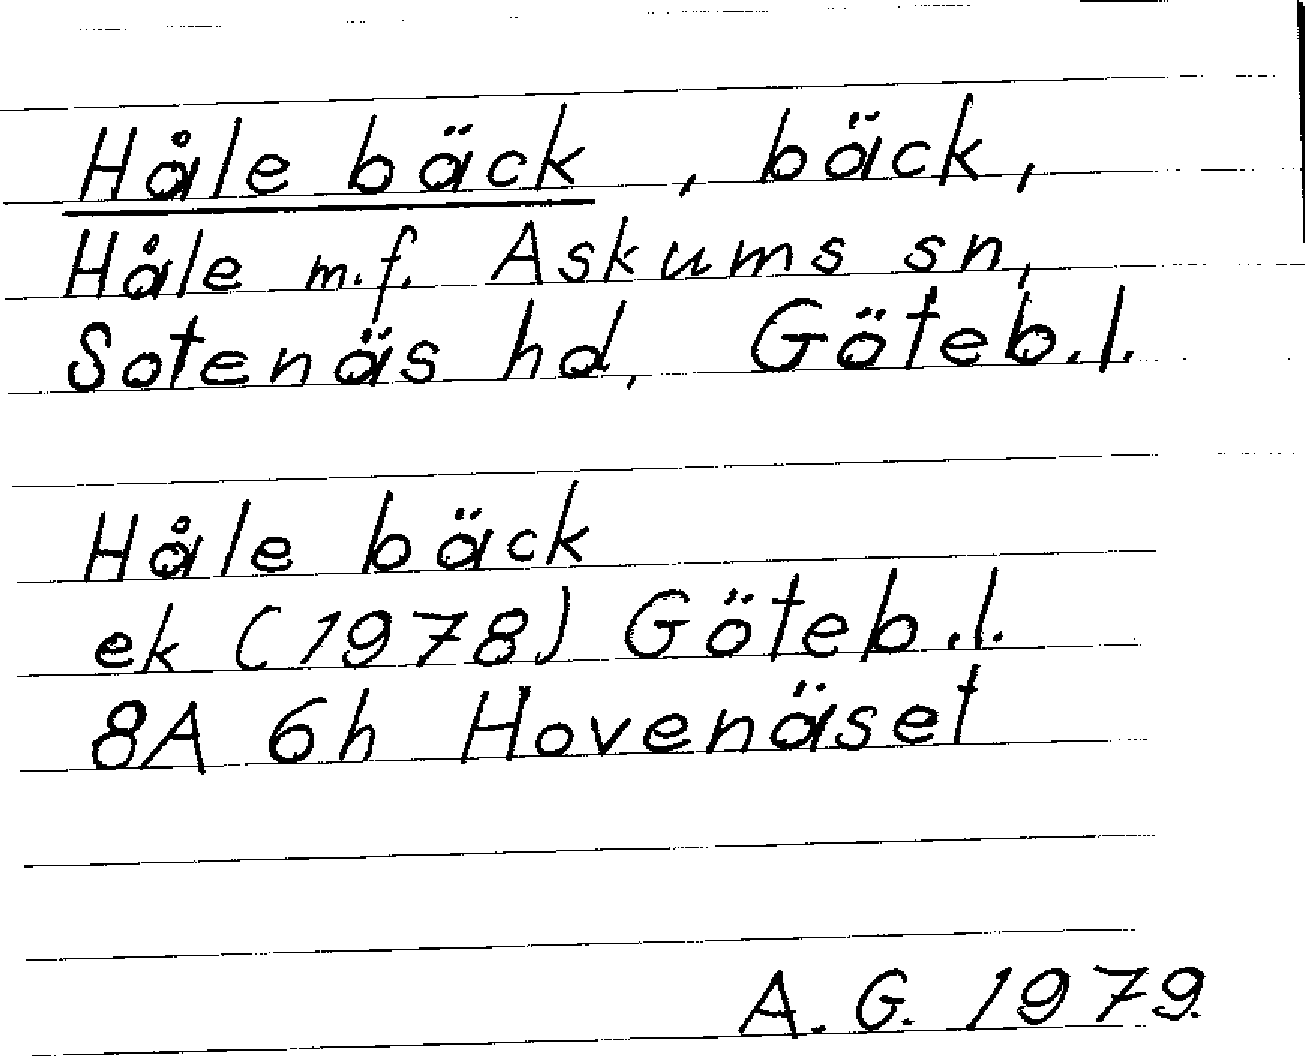 Håle bäck, bäck,
Håle m.f. Askums sn,
Sotenäs hd, Göteb.l.
Håle bäck
ek (1978) Göteb.l.
8A 6h Hovenäset
A.G. 1979.